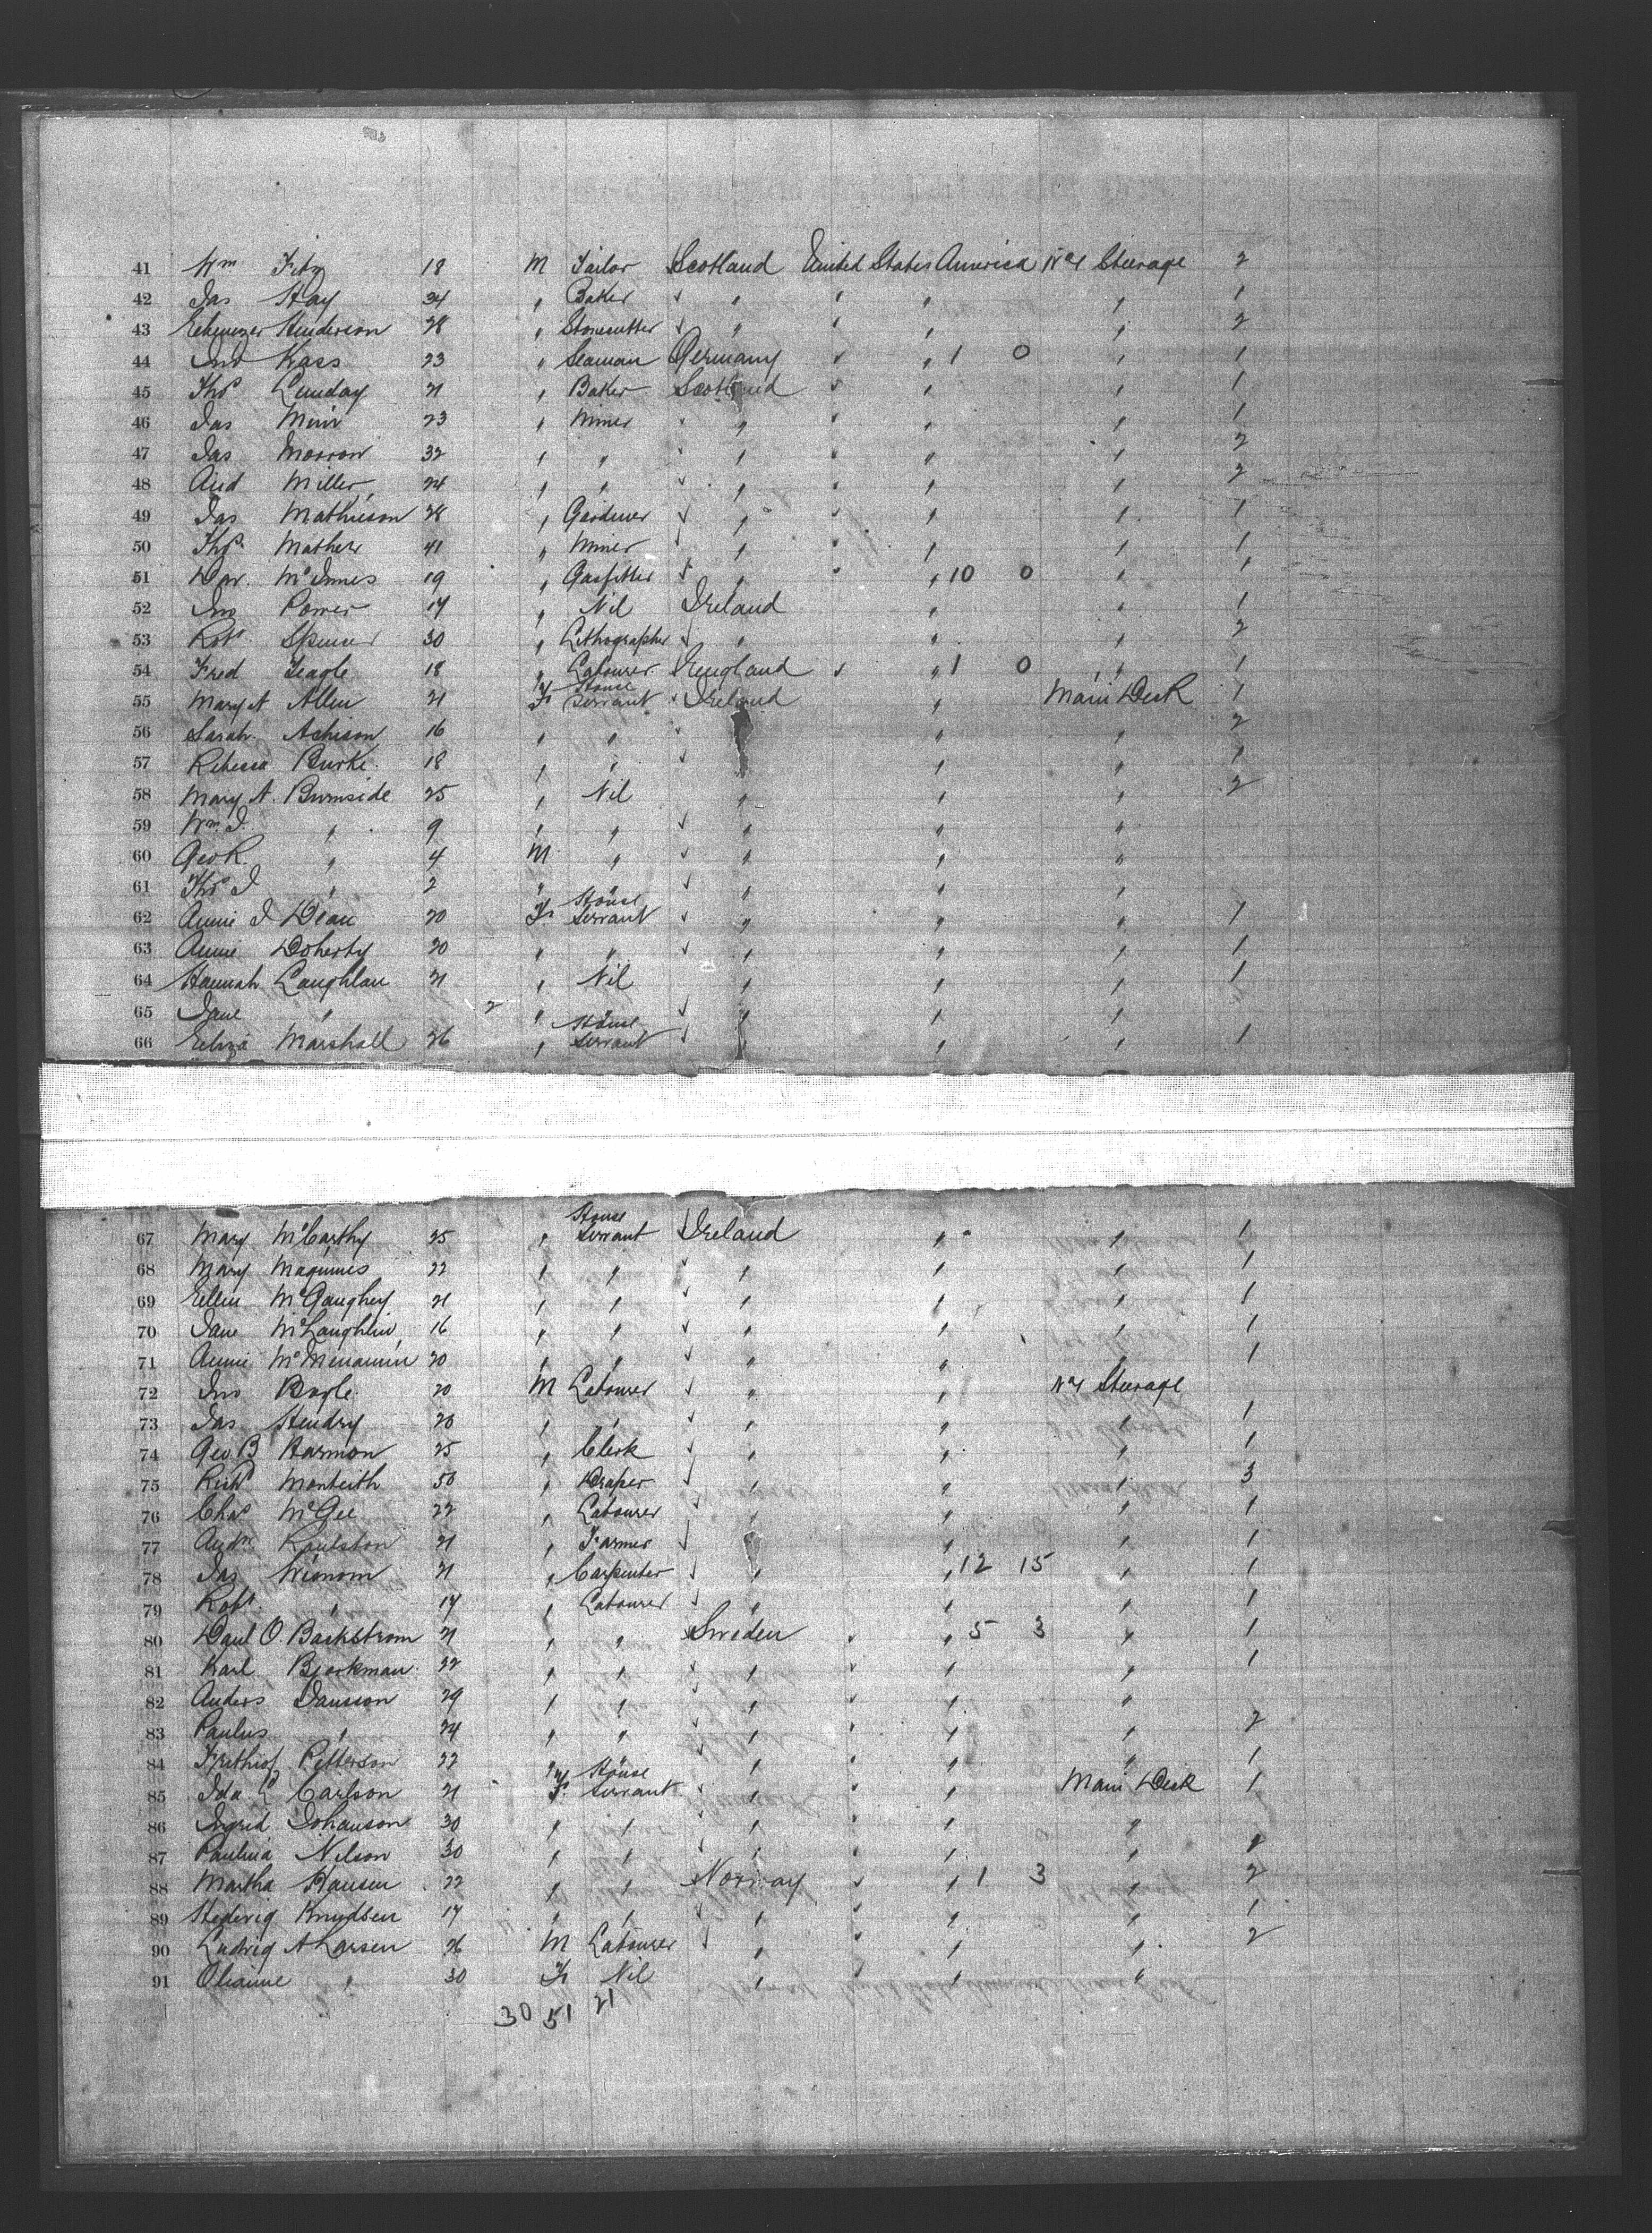 41 Wm Fitz 18 M Tailor Scotland United States America No 1 Steerage 2
42 Jas Hay 34 " Baker " " " " " 1
43 Ebenezer Henderson 28 " Stonecutter " " " " " 2
44 Jno Kass 23 " Seaman Germany " " 1 0 " 1
45 Thos Lunday 21 " Baker Scotland " " " 1
46 Jas Muir 23 " Miner " " " " " 1
47 Jas Morrow 32 " " " " " " 2
48 And Miller 24 " " " " " " 2
49 Jas Mathieson 28 " Gardener " " " " 1
50 Thos Mathers 41 " Miner " " " " 1
51 Dav. McInnes 19 " Gasfitter " " " 10 0 " 1
52 Jno Power 17 " Nil Ireland " " 1
53 Robt Spencer 30 " Lithographer " " " 2
54 Fred Teagle 18 " Labourer England " " 1 0 " 1
55 Mary A Allen 21 F House Servant Ireland " Main Deck 1
56 Sarah Achison 16 " " " " " 2
57 Rebecca Burke 18 " " " " 1
58 Mary A. Burnside 25 " Nil " " " 2
59 Wm J. " 9 " " " " "
60 Geo R. " 4 M " " " "
61 Thos J " 2 " " " " "
62 Annie J Dean 20 F House Servant " " " 1
63 Annie Doherty 20 " " " " " 1
64 Hannah Laughlan 21 " Nil " " " 1
65 Jane " 2 " " " " "
66 Eliza Marshall 26 " House Servant " " " 1
67 Mary McCarthy 25 " House Servant Ireland " " 1
68 Mary Maguines 22 " " " " " 1
69 Ellen McGaughey 21 " " " " " 1
70 Jane McLaughlin 16 " " " " " 1
71 Annie McMenamin 20 " " " " " 1
72 Jno Boyle 20 M Labourer " " No 1 Steerage
73 Jas Hendry 20 " " " " " 1
74 Geo B Harmon 25 " Clerk " " " 1
75 Richd Monteith 50 " Draper " " " 3
76 Chas McGee 22 " Labourer " " " 1
77 Andw Roulston 21 " Farmer " " " 1
78 Jas Wisnom 21 " Carpenter " " 12 15 " 1
79 Robt " 17 " Labourer " " " 1
80 Paul O. Backstrom 21 " " Sweden " " 5 3 " 1
81 Karl Bjorkman 22 " " " " " " 1
82 Anders Dansson 29 " " " " " "
83 Paulus " 24 " " " " " 2
84 Frithiof Petterson 22 " " " " " " 1
85 Ida L Carlson 21 F House Servant " " " Main Deck 1
86 Ingrid Johanson 30 " " " " " "
87 Paulina Nilson 30 " " " " " "
88 Martha Hansen 22 " " Norway " " 1 3 " 2
89 Hedevig Knudsen 17 " " " " " " 1
90 Ludvig A Larsen 26 M Labourer " " " " 2
91 Olianne " 30 F Nil " " " "
30 51 21